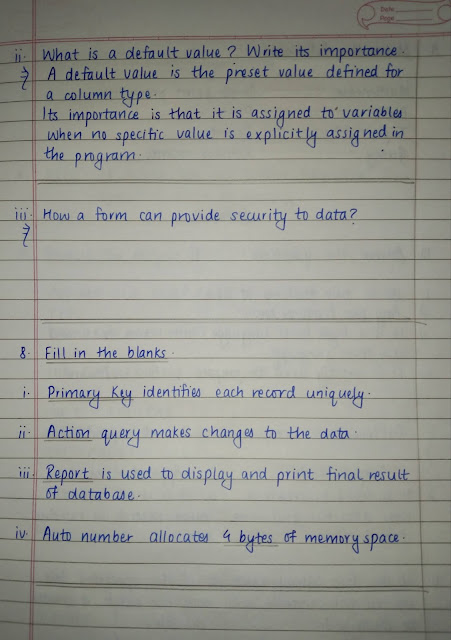 Date
Page
ii. What is a default value? Write its importance.
⇒ A default value is the preset value defined for
a column type.
Its importance is that it is assigned to variables
when no specific value is explicitly assigned in
the program.
iii. How a form can provide security to data?
⇒
8. Fill in the blanks.
i. Primary Key identifies each record uniquely.
ii. Action query makes changes to the data.
iii. Report is used to display and print final result
of database.
iv. Auto number allocates 4 bytes of memory space.